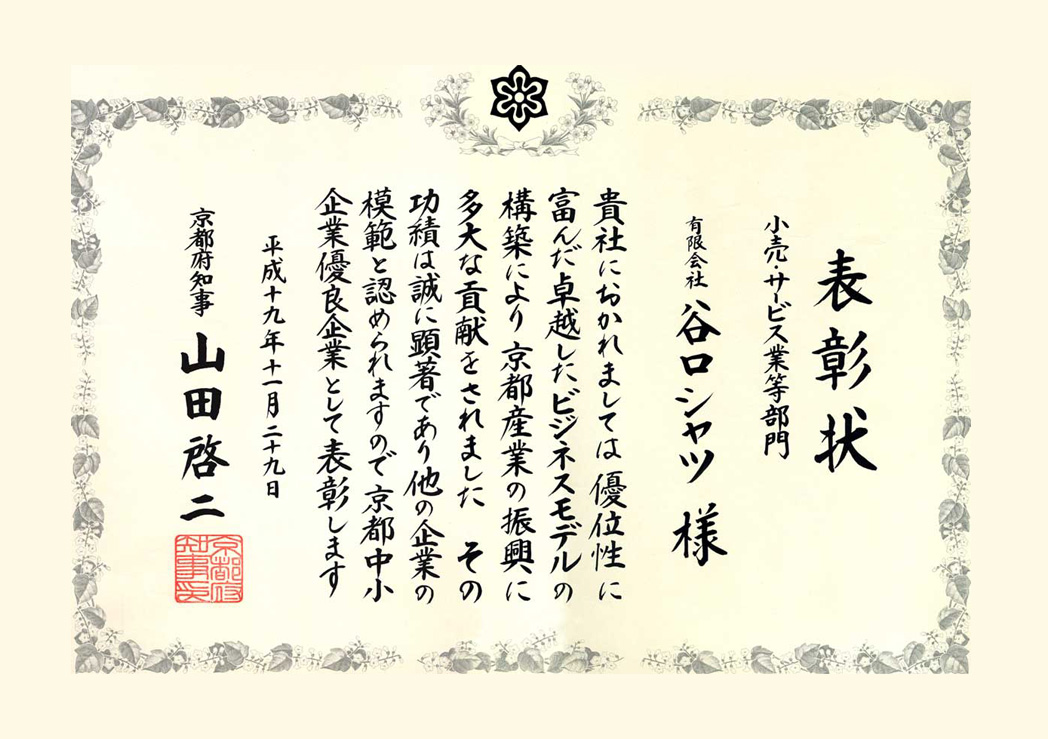 表彰状
小売・サービス業等部門
有限会社 谷口シャツ 様
貴社におかれましては 優位性に
富んだ卓越したビジネスモデルの
構築により 京都産業の振興に
多大な貢献をされました その
功績は誠に顕著であり他の企業の
模範と認められますので京都中小
企業優良企業として表彰します
平成十九年十一月二十九日
京都府知事 山田啓二
京都府知事印